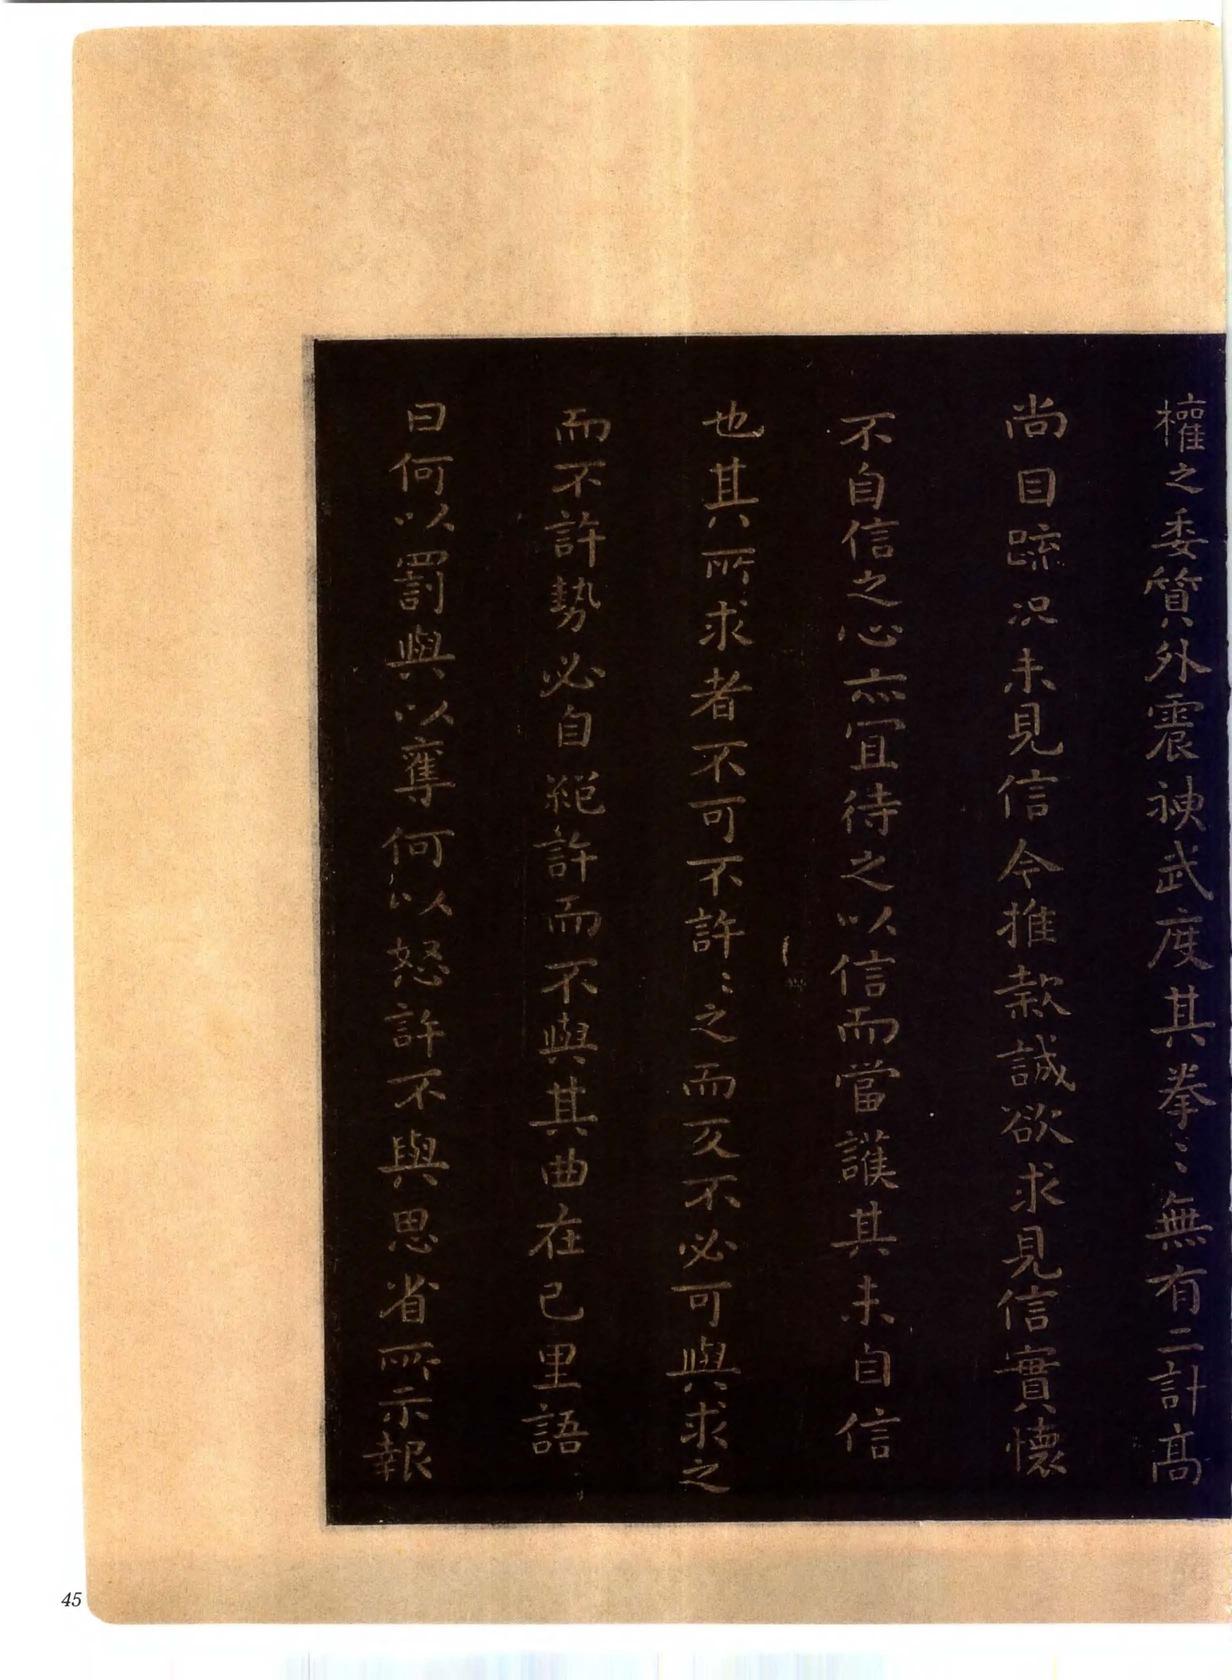 權之委質外震神武度其拳〻無有二計高
尚自疏況未見信今推款誠欲求見信實懷
不自信之心亦宜待之以信而當護其未自信
也其所求者不可不許〻之而反不必可與求之
而不許勢必自絕許而不與其曲在己里語
曰何以罰與以奪何以怒許不與思省所示報
45